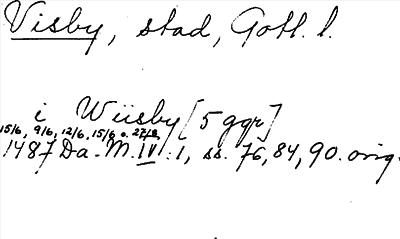 Visby, stad, Gotl. l.
i Wiisby [5 ggr]
15/6, 9/6, 12/6, 15/6 o. 27/8
1487 Da. M. IV:1, ss. 76, 84, 90. orig.